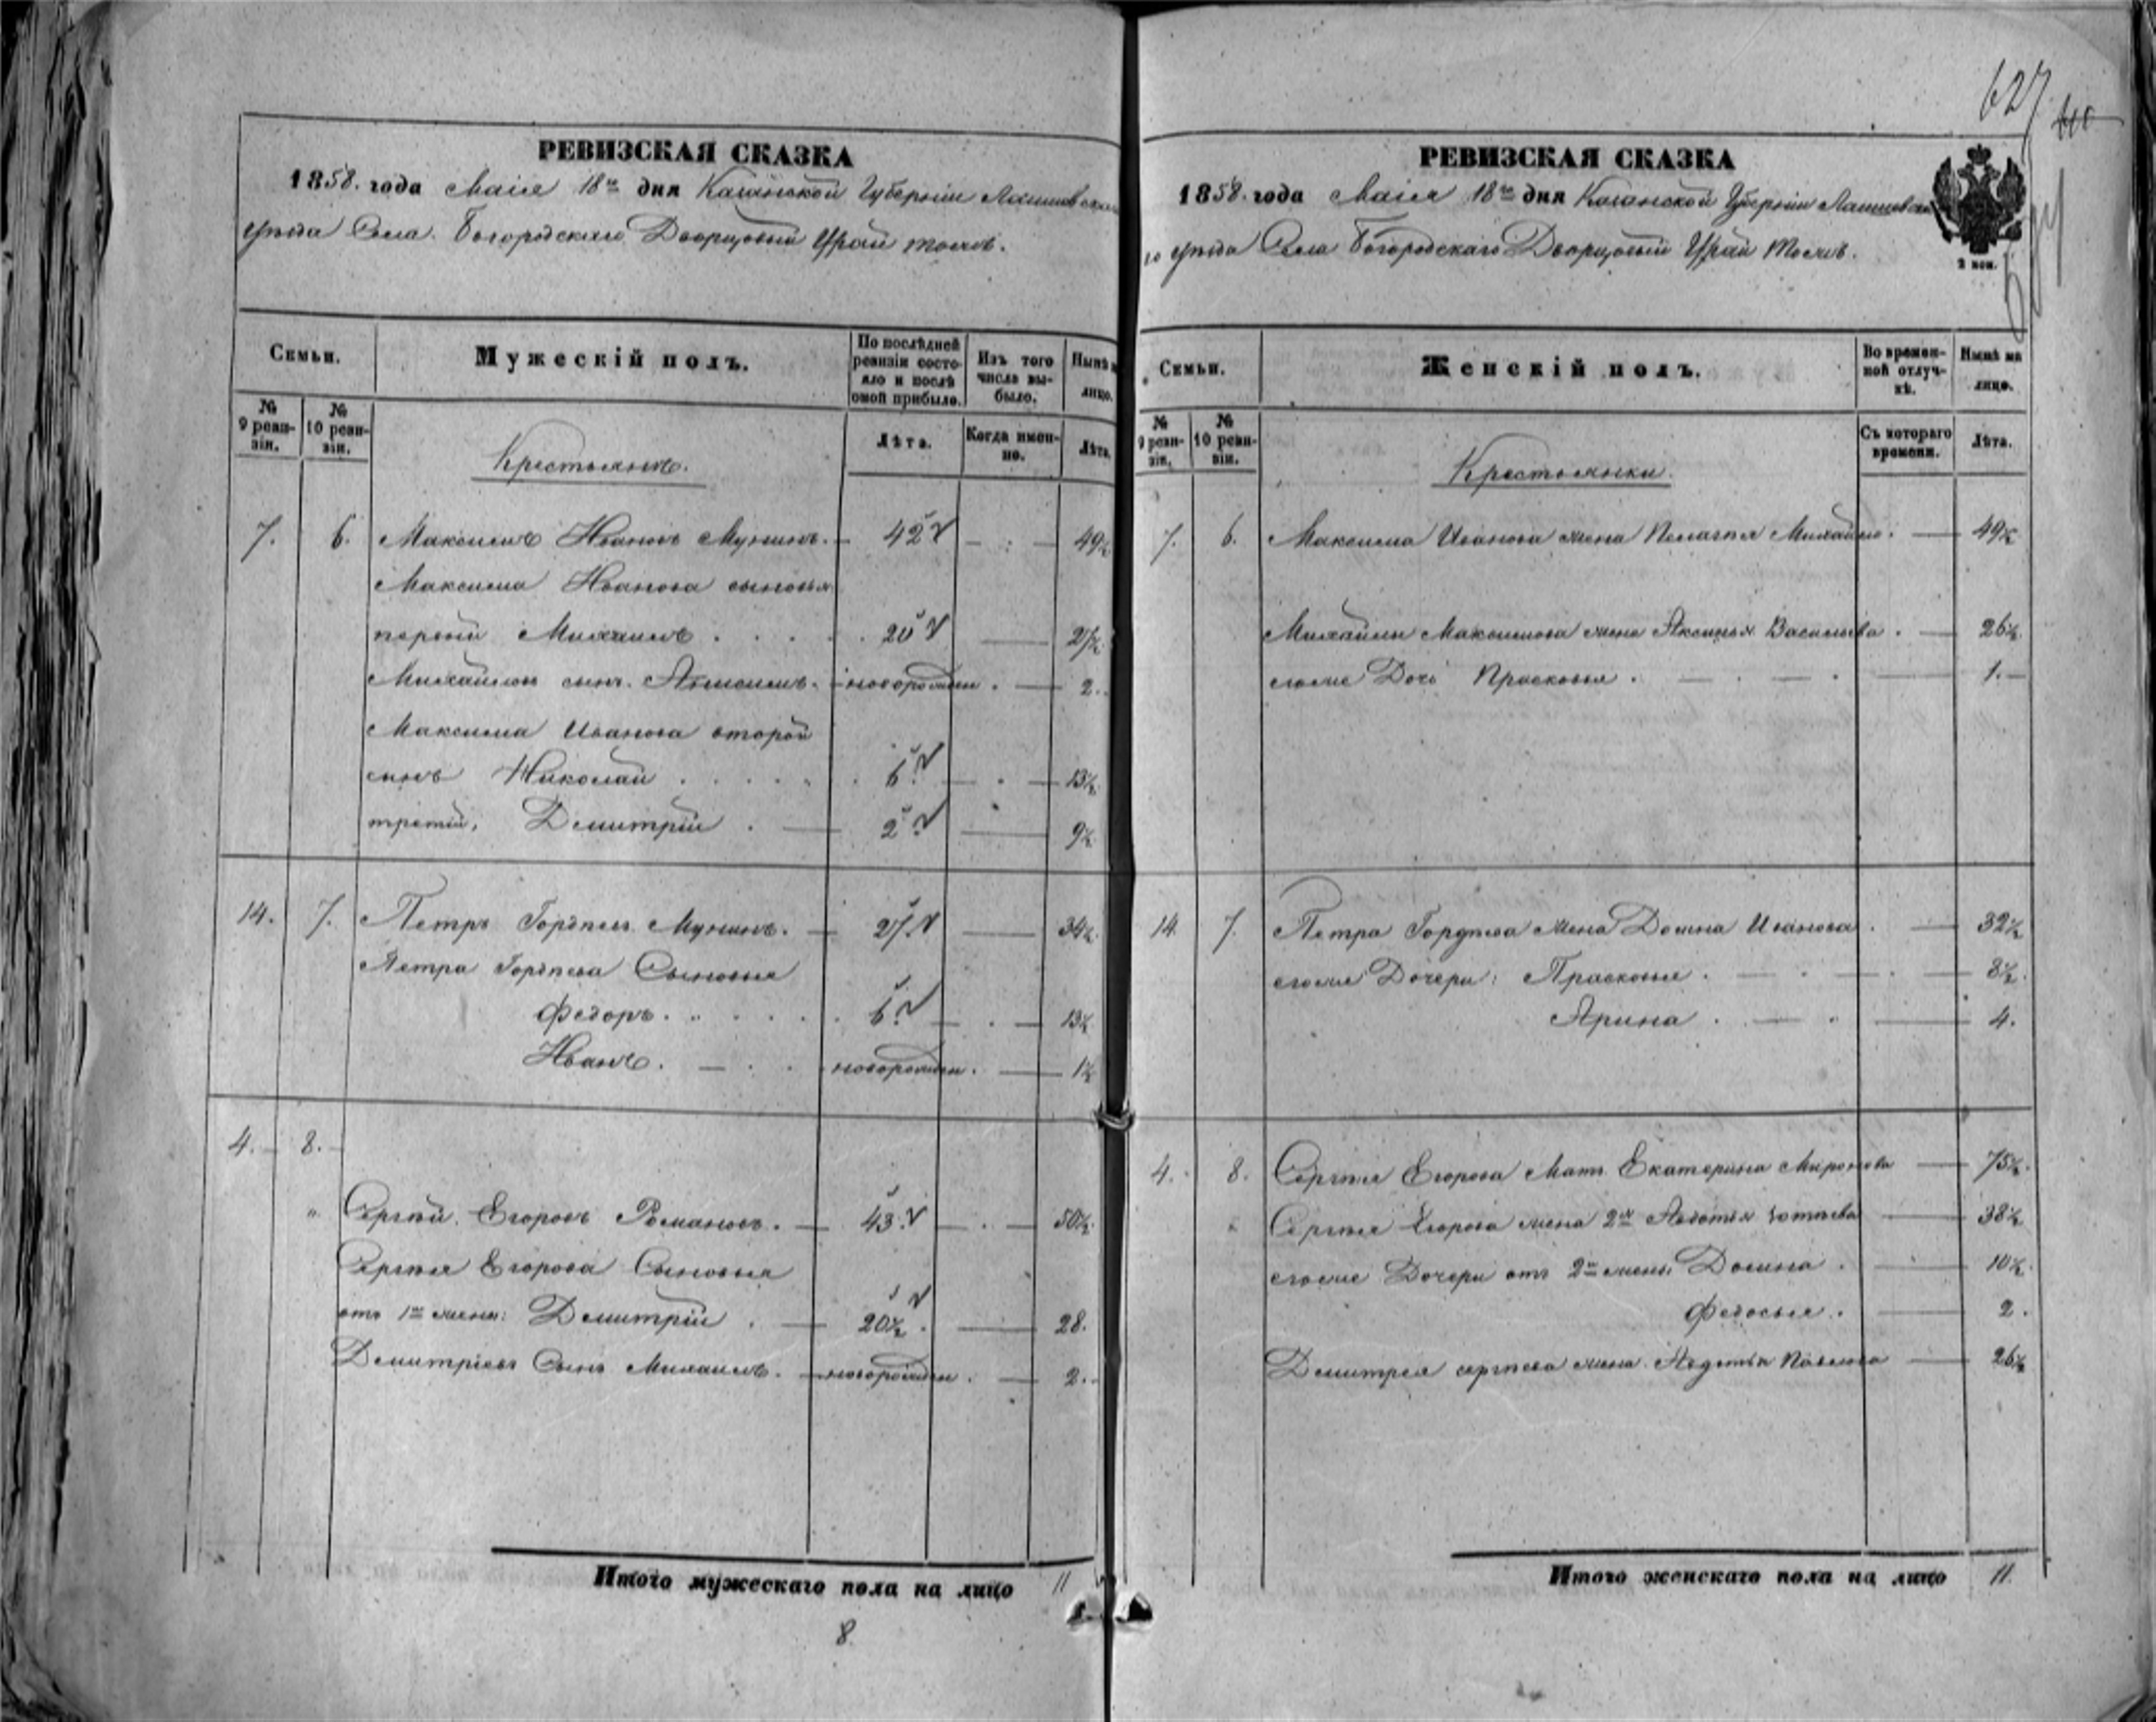 627
РЕВИЗСКАЯ СКАЗКА
1858. года Маiя 18го дня Казанской Губернiи Лаишевска
уѣзда Села Богородскаго Дворцовый Урай тожъ.
Семьи.
Мужескiй полъ.
По послѣдней ревизiи состояло и послѣ оной прибыло.
Изъ того числа выбыло.
Нынѣ на лицо.
№ 9 ревизiи.
№ 10 ревизiи.
Лѣта.
Когда именно.
Лѣта.
Крестьянѣ.
7. 6. Максимъ Ивановъ Мунинъ. 42 49½
Максима Иванова сыновья
первый Михаилъ 20 27½
Михайловъ сынъ новорожден. 2.
Максима Иванова второй
сынъ Николай 6. 13½
третiй, Демитрiй 2. 9½
14. 7. Петръ Гордѣевъ Мунинъ. 27. 34½
Петра Гордѣева Сыновья
Федоръ. 6. 13½
Иванъ. новорожден. 1½
4. 8.
" Сергѣй Егоровъ Романовъ. 43. 50½
Сергѣя Егорова Сыновья
отъ 1й жены: Демитрiй 20½. 28.
Демитрiевъ Сынъ Михаилъ. новорожден. 2.
Итого мужескаго пола на лицо 11
8
РЕВИЗСКАЯ СКАЗКА
1858. года Маiя 18го дня Казанской Губернiи Лаишевска
го уѣзда Села Богородскаго Дворцовый Урай тожъ.
2 коп.
Семьи.
Женскiй полъ.
Во временной отлучкѣ.
Нынѣ на лицо.
№ 9 ревизiи.
№ 10 ревизiи.
Съ котораго времени.
Лѣта.
Крестьянки.
7. 6. Максима Иванова жена Пелагея Михайло. 49½
Михайлы Максимова жена Аксинья Васильева. 26½.
егоже Дочь Прасковья. 1.
14. 7. Петра Гордѣева жена Домна Иванова. 32½
егоже Дочери: Прасковья. 8½.
Арина. 4.
4. 8. Сергѣя Егорова Мать Екатерина Миронова 75½.
" Сергѣя Егорова жена 2я Авдотья 38½
егоже Дочери отъ 2й жены Домна. 10½.
Федосья. 2.
Демитрея сергѣева жена Авдотья Павлова 26½
Итого женскаго пола на лицо 11.